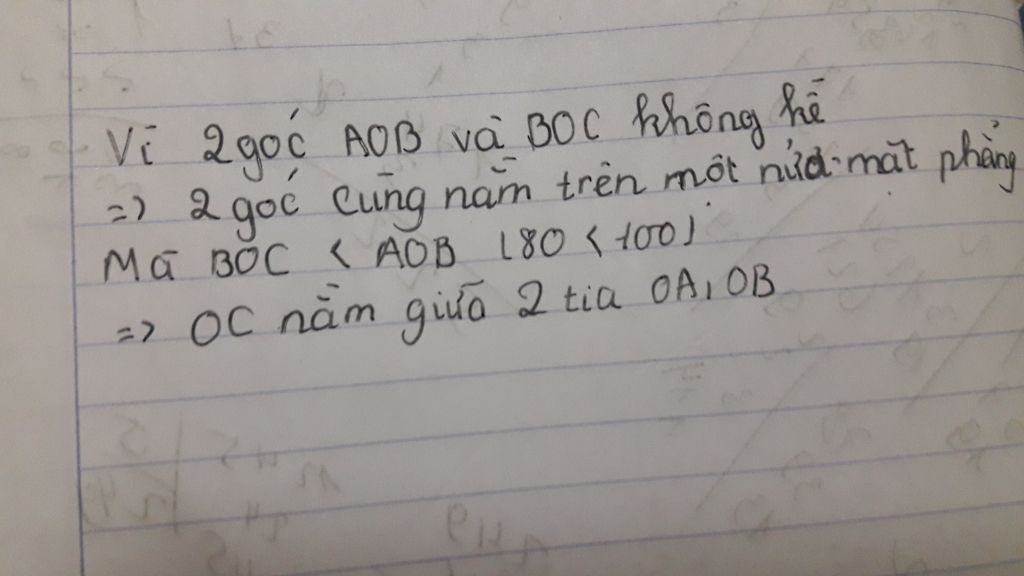 Vì 2 góc AOB và BOC không kề
=> 2 góc cùng nằm trên một nửa mặt phẳng
Mà BOC < AOB (80 < 100)
=> OC nằm giữa 2 tia OA, OB